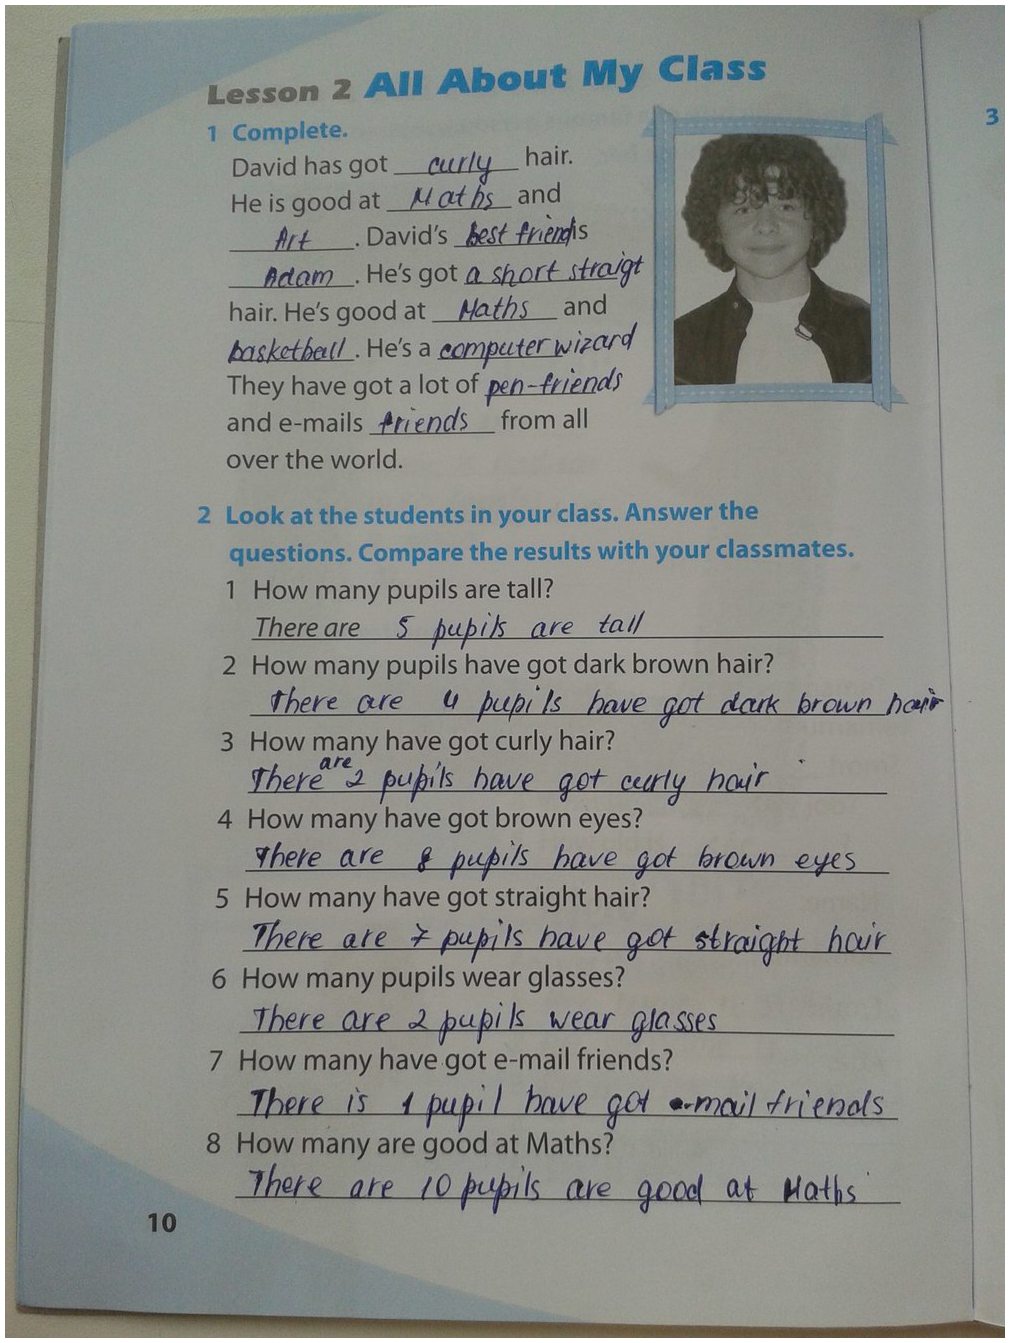 Lesson 2 All About My Class
3
1 Complete.
David has got curly hair.
He is good at Maths and
Art. David's best friend is
Adam. He's got a short straigt
hair. He's good at Maths and
basketball. He's a computer wizard
They have got a lot of pen-friends
and e-mails friends from all
over the world.
2 Look at the students in your class. Answer the
questions. Compare the results with your classmates.
1 How many pupils are tall?
There are 5 pupils are tall
2 How many pupils have got dark brown hair?
There are 4 pupils have got dark brown hair
3 How many have got curly hair?
There are 2 pupils have got curly hair
4 How many have got brown eyes?
There are 8 pupils have got brown eyes
5 How many have got straight hair?
There are 7 pupils have got straight hair
6 How many pupils wear glasses?
There are 2 pupils wear glasses
7 How many have got e-mail friends?
There is 1 pupil have got e-mail friends
8 How many are good at Maths?
There are 10 pupils are good at Maths
10